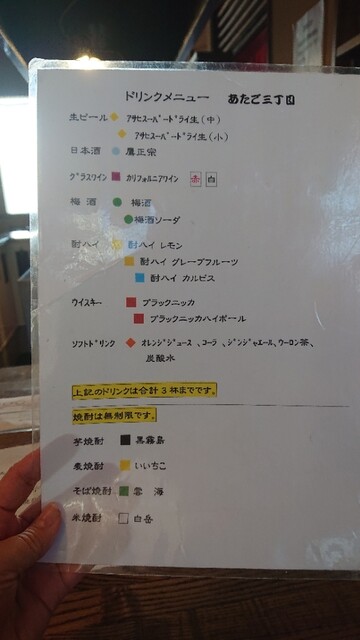 ドリンクメニュー あたご三丁目
生ビール ｱｻﾋｽｰﾊﾟｰﾄﾞﾗｲ生(中)
ｱｻﾋｽｰﾊﾟｰﾄﾞﾗｲ生(小)
日本酒 鷹正宗
ｸﾞﾗｽﾜｲﾝ ｶﾘﾌｫﾙﾆｱﾜｲﾝ 赤 白
梅酒 梅酒
梅酒ソーダ
酎ハイ 酎ハイ レモン
酎ハイ グレープフルーツ
酎ハイ カルピス
ｳｲｽｷｰ ブラックニッカ
ブラックニッカハイボール
ｿﾌﾄﾄﾞﾘﾝｸ ｵﾚﾝｼﾞｼﾞｭｰｽ 、ｺｰﾗ 、ｼﾞﾝｼﾞｬｴｰﾙ、ｳｰﾛﾝ茶、
炭酸水
上記のドリンクは合計３杯までです。
焼酎は無制限です。
芋焼酎 黒霧島
麦焼酎 いいちこ
そば焼酎 雲 海
米焼酎 白岳